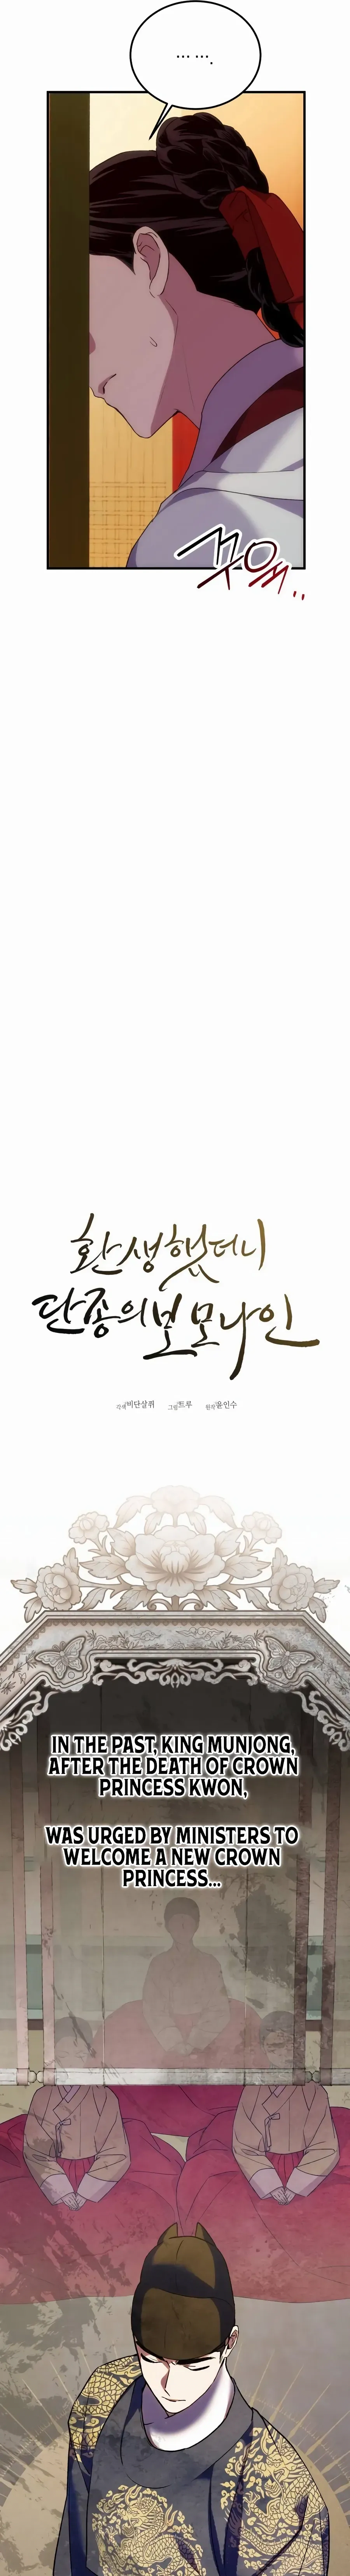 ... ....
꾸욱..
환생했더니
단종의 보모나인
각색 비단살퀴 그림 트루 원작 윤인수
IN THE PAST, KING MUNJONG,
AFTER THE DEATH OF CROWN
PRINCESS KWON,
WAS URGED BY MINISTERS TO
WELCOME A NEW CROWN
PRINCESS...